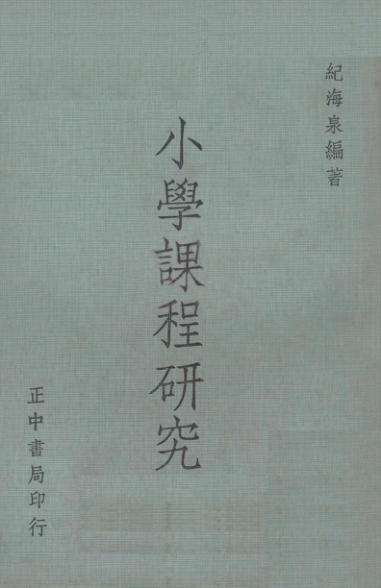 紀海泉編著
小學課程研究
正中書局印行